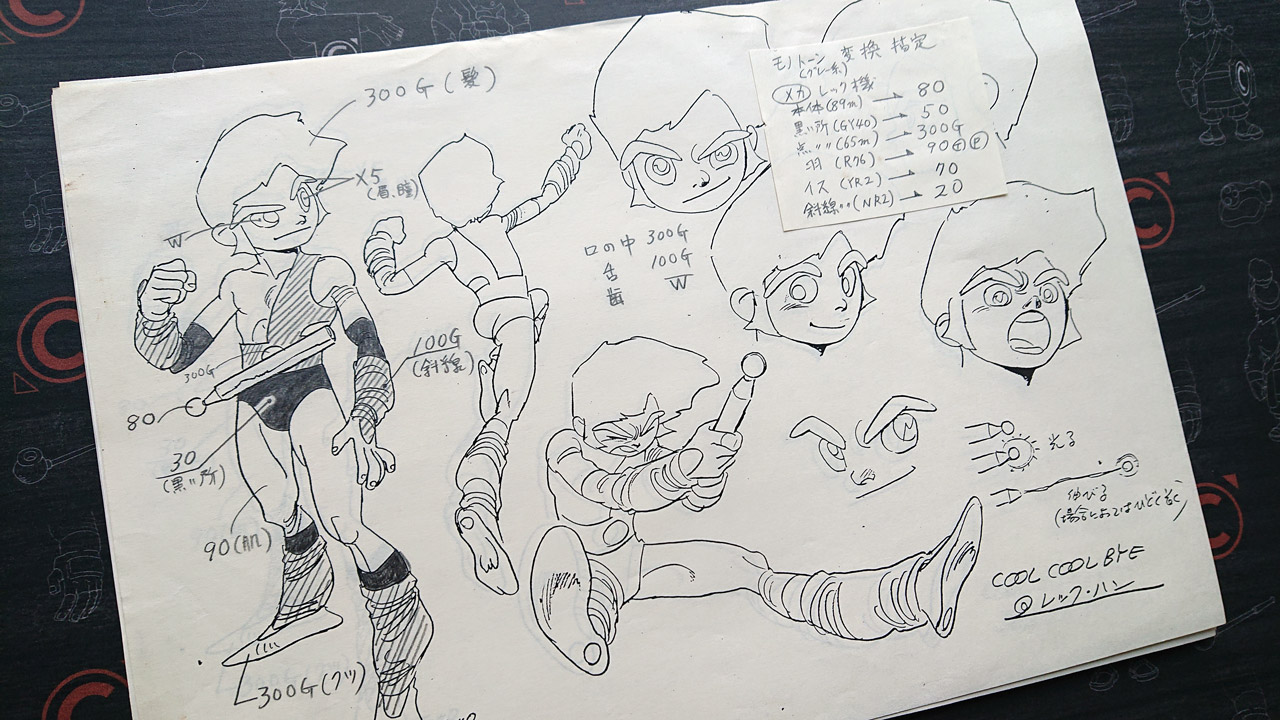 300G(髪)
X5
(眉、瞳)
W
300G
80
30
(黒い所)
90(肌)
300G(クツ)
100G
(斜線)
口の中 300G
舌 100G
歯 W
モノトーン 変換 指定
(グレー系)
メカ レック機
本体(89m) → 80
黒い所(GY40) → 50
点〃〃(65m) → 300G
羽(R76) → 90
イス(YR2) → 70
斜線〃(NR2) → 20
光る
伸びる
(場合によってはひどく長く)
COOL COOL BYE
@レック・ハン